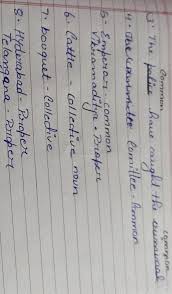 Common common
3. The police have caught the
4. The Committee - Common
5. Emperor - common
Vikramaditya - Proper
6. Cattle - Collective noun
7. Bouquet - Collective
8. Hyderabad - Proper
Telangana - Proper